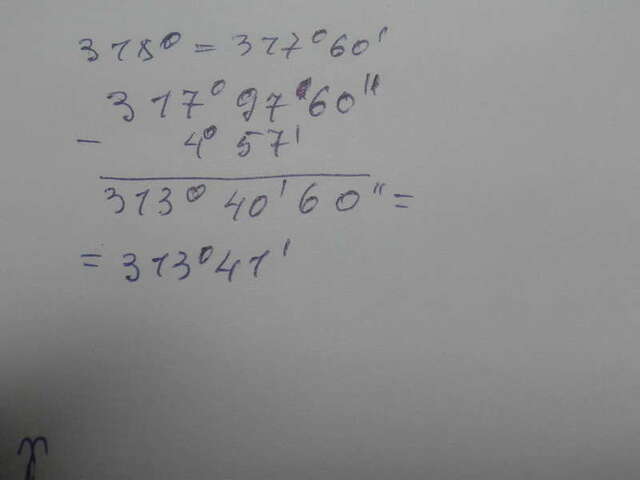 318° = 317°60'
317° 97'60"
- 4° 57'
313° 40'60" =
= 313°41'